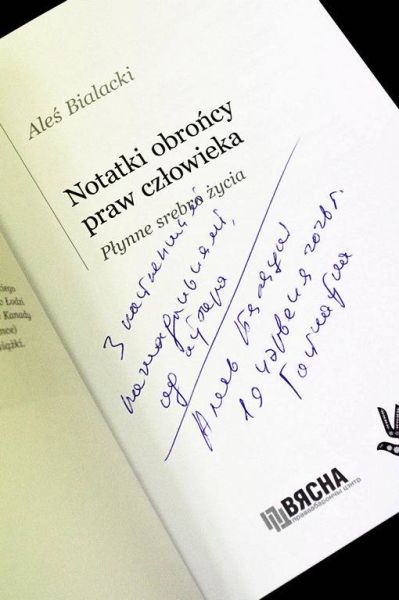 Aleś Bialacki
Notatki obrońcy
praw człowieka
Płynne srebro życia
З
ад аўтара
Алесь Бяляцкі
19 чэрвеня 2026 г.
kiego
o Łodzi
Kanady
nce)
iążki.
ВЯСНА
праваабарончы цэнтр